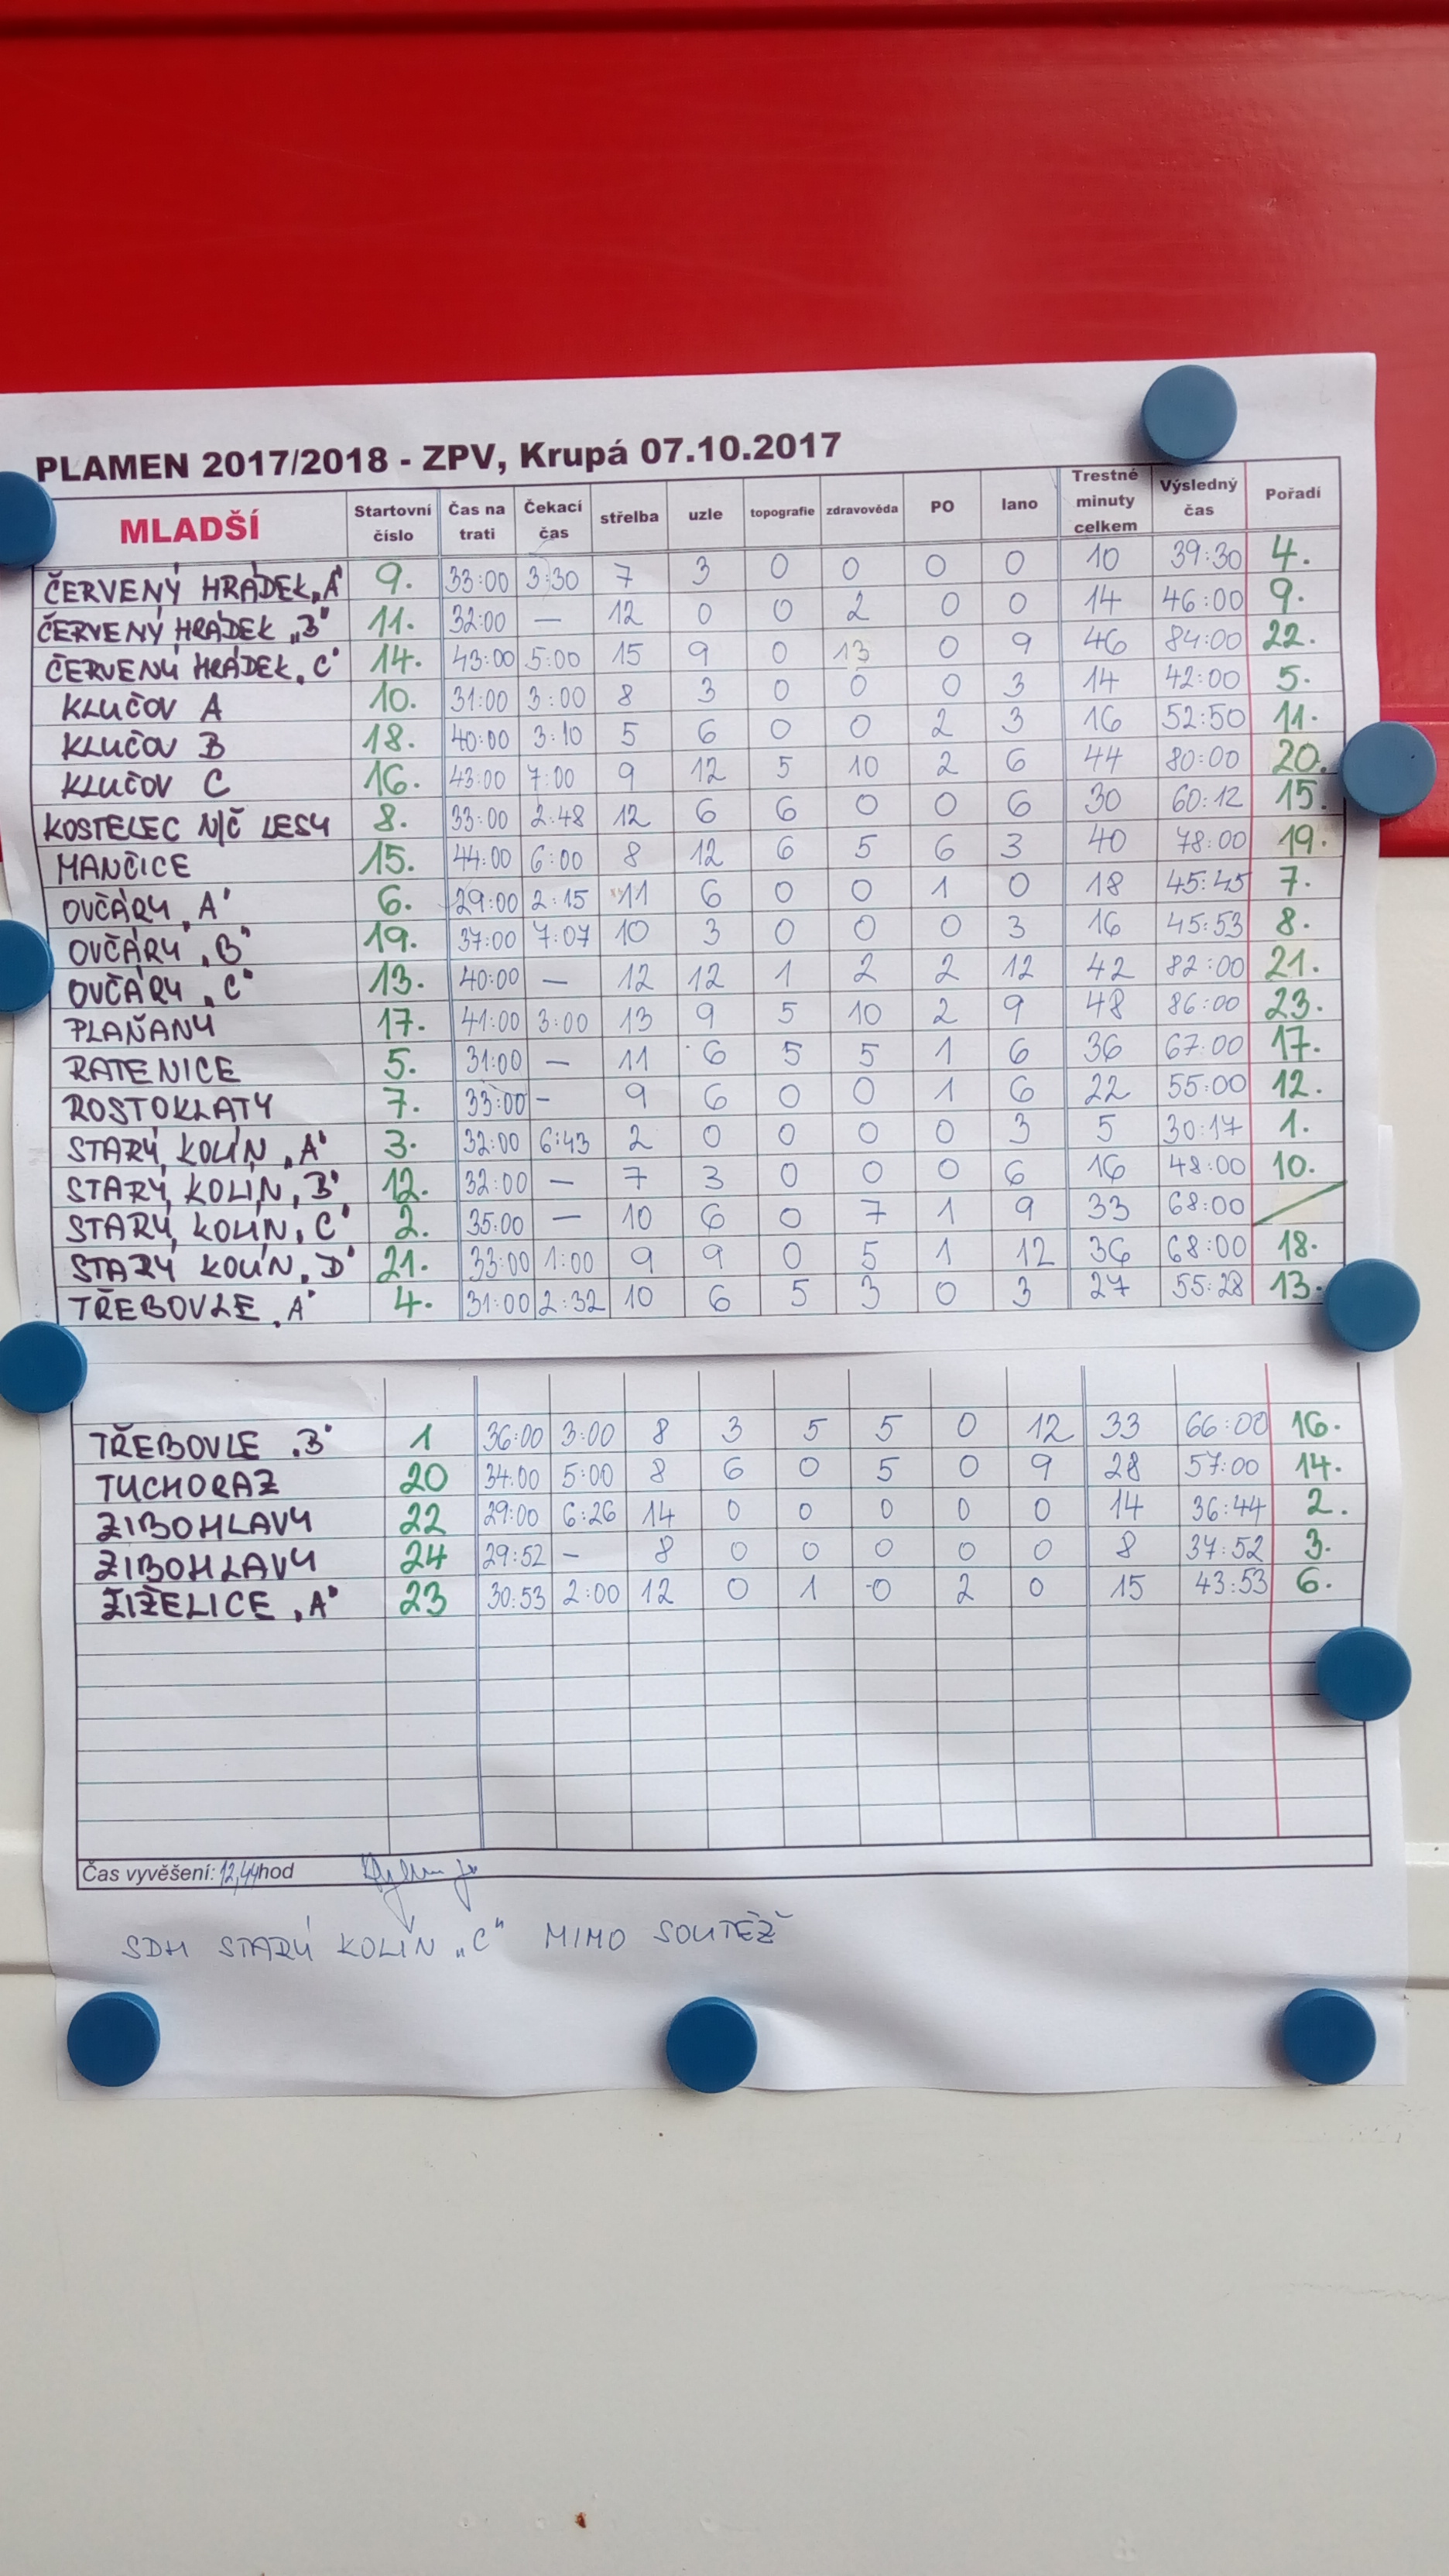 PLAMEN 2017/2018 - ZPV, Krupá 07.10.2017
MLADŠÍ Startovní číslo Čas na trati Čekací čas střelba uzle topografie zdravověda PO lano Trestné minuty celkem Výsledný čas Pořadí
ČERVENÝ HRÁDEK „A" 9. 33:00 3:30 7 3 0 0 0 0 10 39:30 4.
ČERVENÝ HRÁDEK „B" 11. 32:00 — 12 0 0 2 0 0 14 46:00 9.
ČERVENÝ HRÁDEK „C" 14. 43:00 5:00 15 9 0 13 0 9 46 84:00 22.
KLUČOV A 10. 31:00 3:00 8 3 0 0 0 3 14 42:00 5.
KLUČOV B 18. 40:00 3:10 5 6 0 0 2 3 16 52:50 11.
KLUČOV C 16. 43:00 7:00 9 12 5 10 2 6 44 80:00 20.
KOSTELEC N/Č LESY 8. 33:00 2:48 12 6 6 0 0 6 30 60:12 15.
MANČICE 15. 44:00 6:00 8 12 6 5 6 3 40 78:00 19.
OVČÁRY „A" 6. 29:00 2:15 11 6 0 0 1 0 18 45:45 7.
OVČÁRY „B" 19. 37:00 7:07 10 3 0 0 0 3 16 45:53 8.
OVČÁRY „C" 13. 40:00 — 12 12 1 2 2 12 42 82:00 21.
PLAŇANY 17. 41:00 3:00 13 9 5 10 2 9 48 86:00 23.
RATENICE 5. 31:00 — 11 6 5 5 1 6 36 67:00 17.
ROSTOKLATY 7. 33:00 - 9 6 0 0 1 6 22 55:00 12.
STARÝ KOLÍN „A" 3. 32:00 6:43 2 0 0 0 0 3 5 30:17 1.
STARÝ KOLÍN „B" 12. 32:00 — 7 3 0 0 0 6 16 48:00 10.
STARÝ KOLÍN „C" 2. 35:00 — 10 6 0 7 1 9 33 68:00
STARÝ KOLÍN „D" 21. 33:00 1:00 9 9 0 5 1 12 36 68:00 18.
TŘEBOVLE „A" 4. 31:00 2:32 10 6 5 3 0 3 27 55:28 13.
TŘEBOVLE „B" 1 36:00 3:00 8 3 5 5 0 12 33 66:00 16.
TUCHORAZ 20 34:00 5:00 8 6 0 5 0 9 28 57:00 14.
ZIBOHLAVY 22 29:00 6:26 14 0 0 0 0 0 14 36:44 2.
ZIBOHLAVY 24 29:52 - 8 0 0 0 0 0 8 37:52 3.
ŽIŽELICE „A" 23 30:53 2:00 12 0 1 0 2 0 15 43:53 6.
Čas vyvěšení: 12,44 hod
SDH STARÝ KOLÍN „C" MIMO SOUTĚŽ